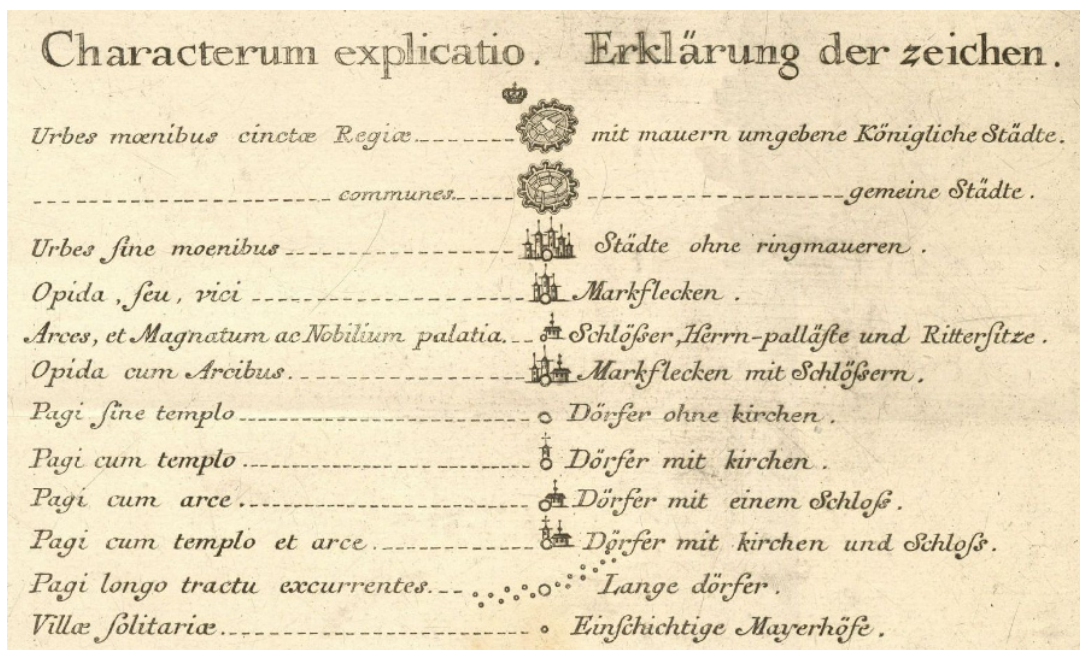 Characterum explicatio. Erklärung der zeichen.
Urbes mœnibus cinctæ Regiæ mit mauern umgebene Königliche Städte.
communes gemeine Städte.
Urbes ſine moenibus Städte ohne ringmaueren.
Opida, ſeu, vici Markflecken.
Arces, et Magnatum ac Nobilium palatia. Schlöſser, Herrn-palläſte und Ritterſitze.
Opida cum Arcibus. Markflecken mit Schlöſsern.
Pagi ſine templo Dörfer ohne kirchen.
Pagi cum templo Dörfer mit kirchen.
Pagi cum arce. Dörfer mit einem Schloſs.
Pagi cum templo et arce. Dörfer mit kirchen und Schloſs.
Pagi longo tractu excurrentes. Lange dörfer.
Villæ ſolitariæ. Einſchichtige Mayerhöfe.